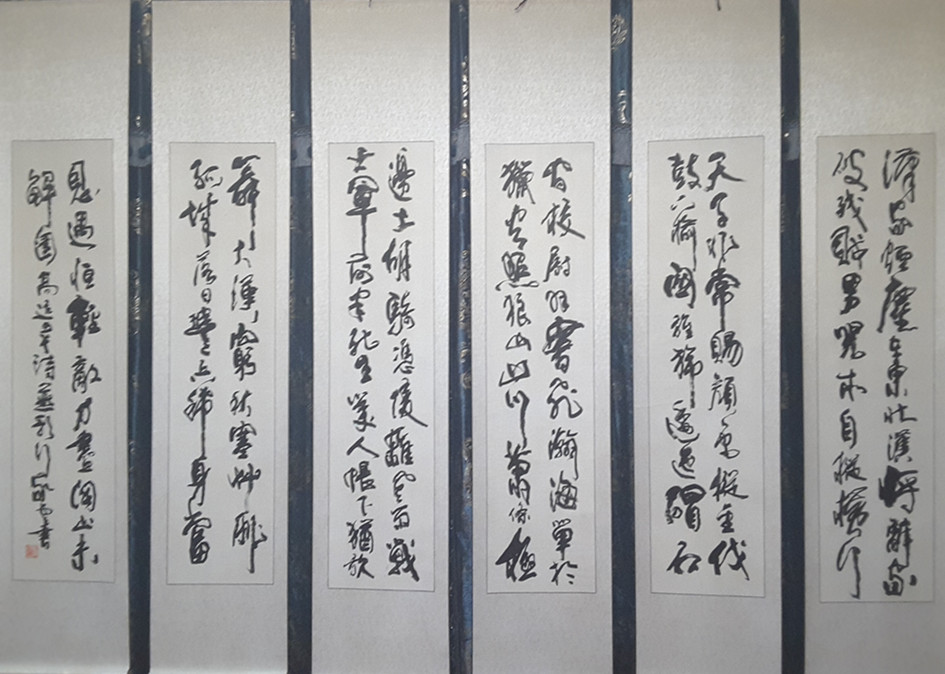 漢家煙塵在東北漢將辭家
破殘賊男兒本自縱橫行
天子非常賜顏色摐金伐
鼓下榆關旌旆逶迤碣石
間校尉羽書飛瀚海單於
獵火照狼山山川蕭條極
邊土胡騎憑陵雜風雨戰
士軍前半死生美人帳下猶歌
舞大漠窮秋塞草腓
孤城落日鬥兵稀身當
恩遇恒輕敵力盡關山未
解圍高適詩燕歌行書